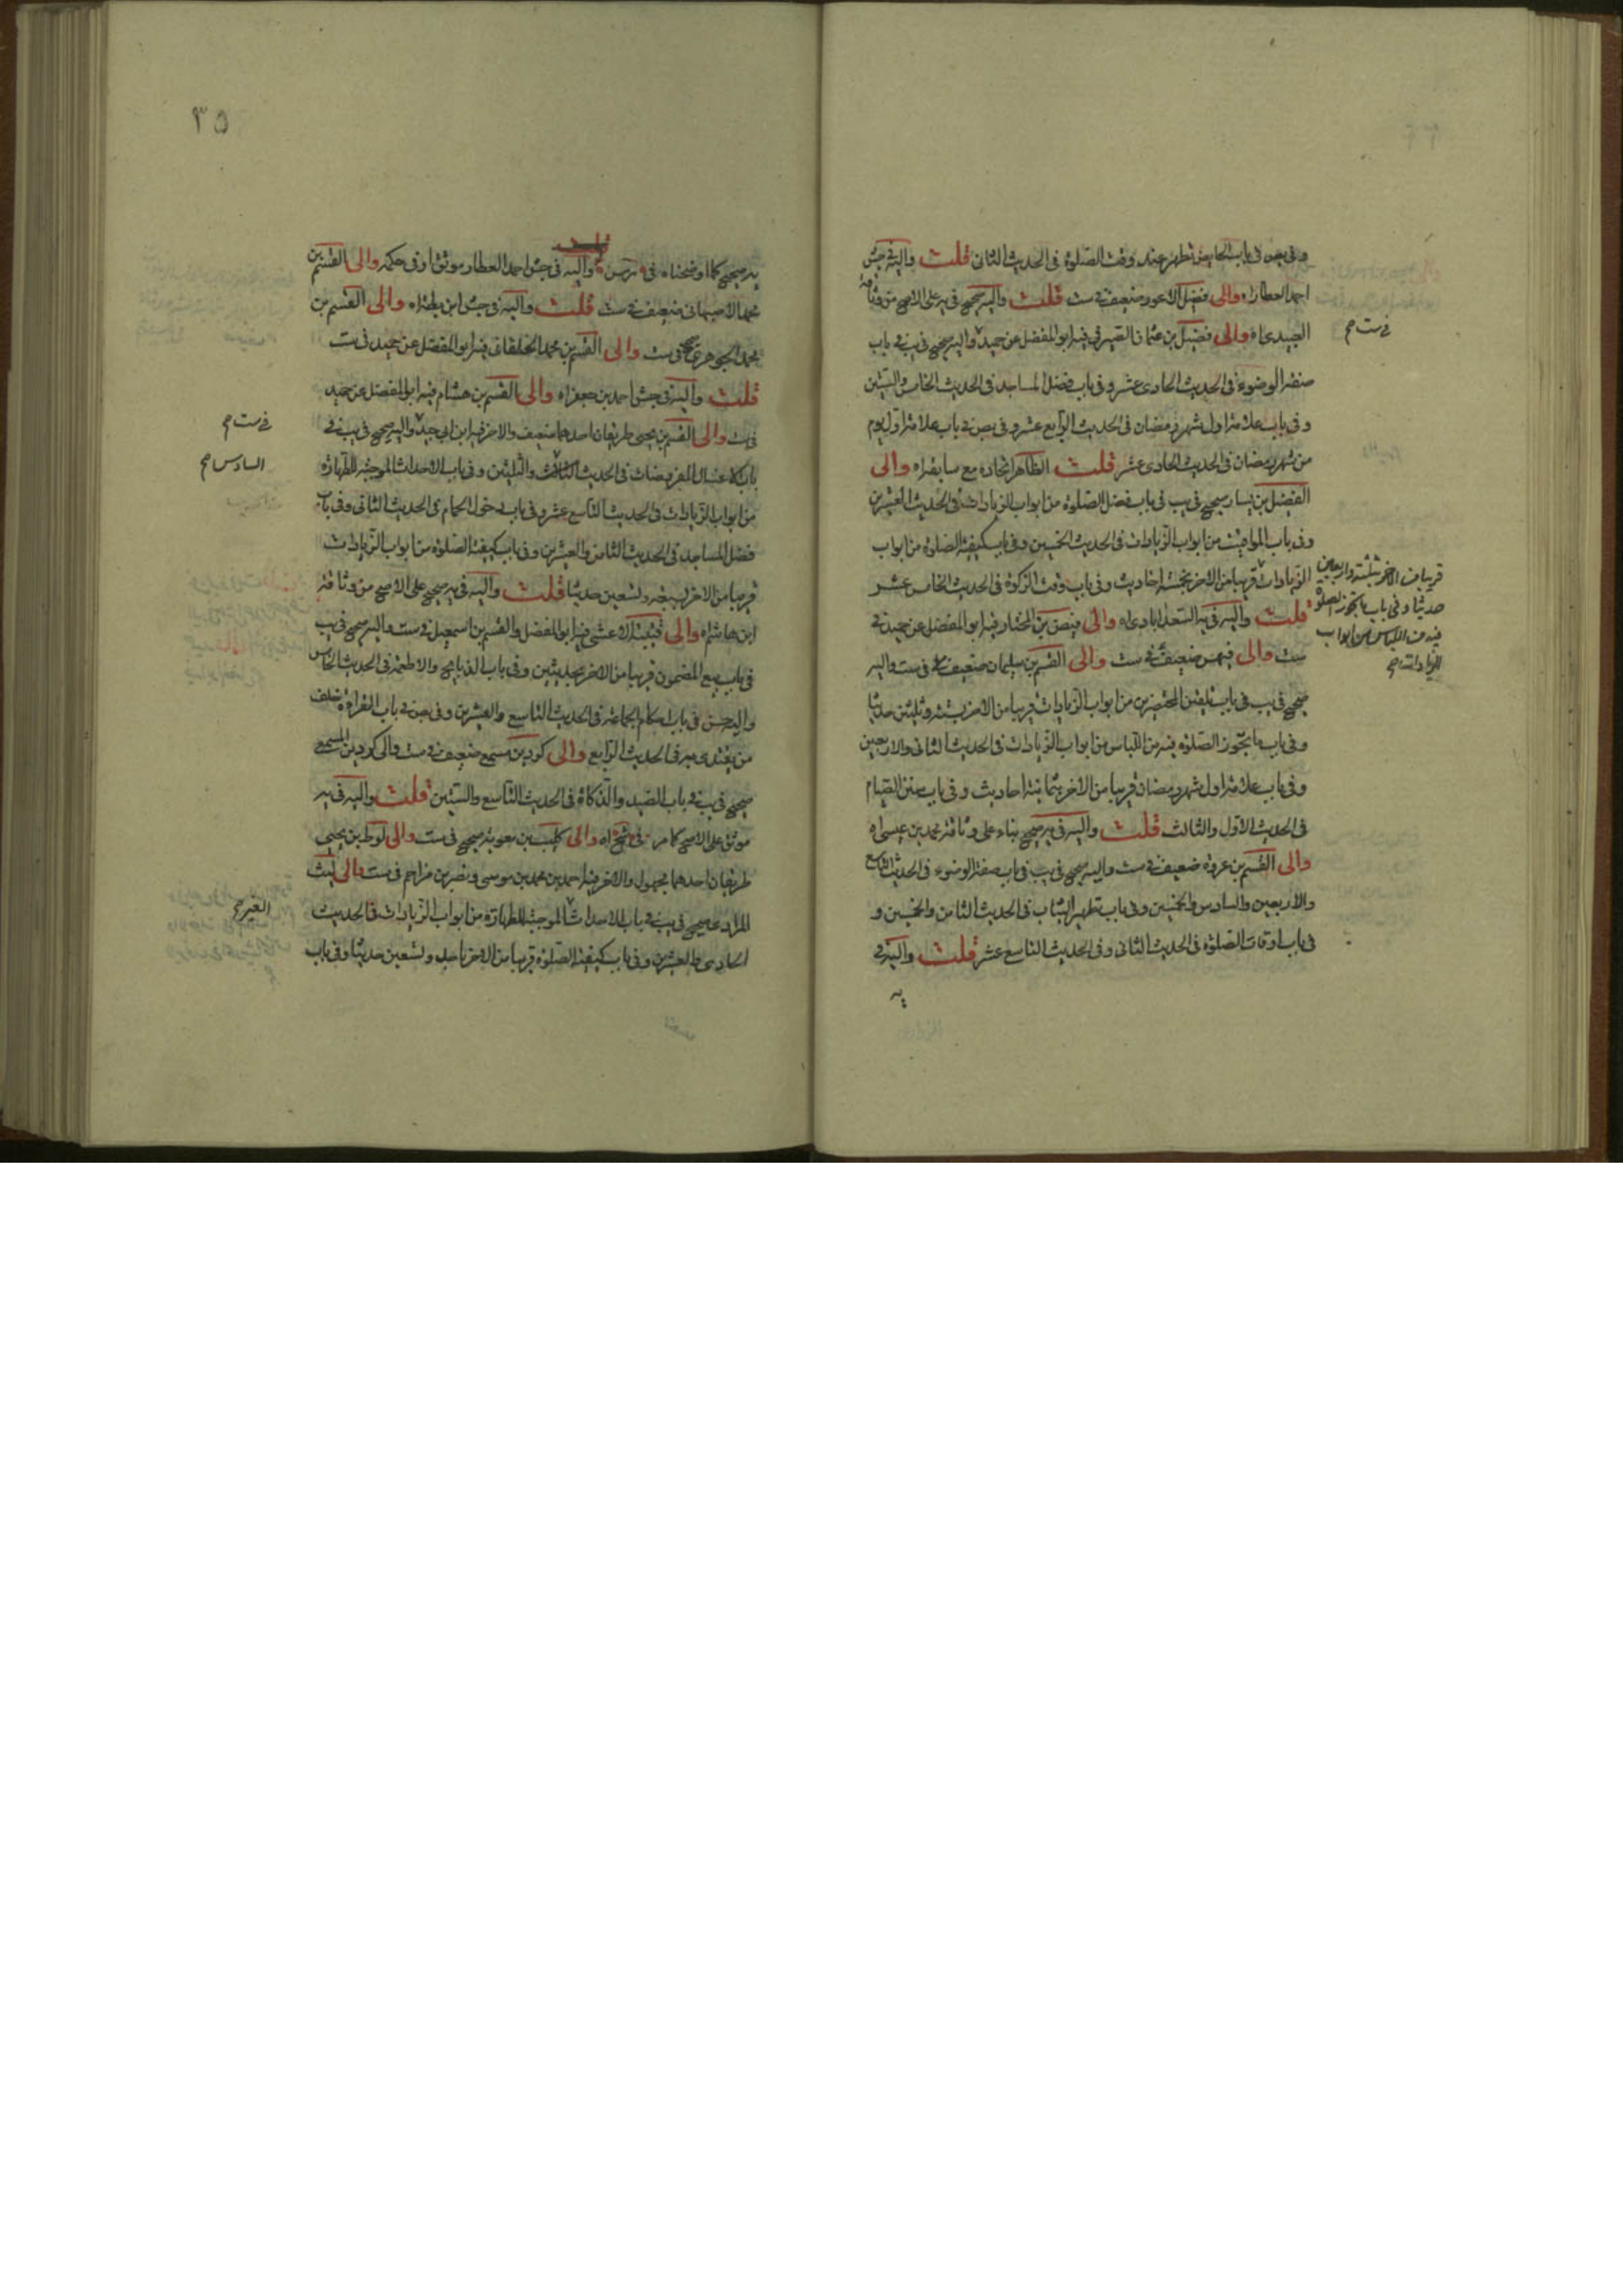 وفى بص فى باب الحايض تطهر عند وقت الصلوة فى الحديث الثانى قلت واليه فى جش
احمد العطار اه والى فضيل الاعور ضعيف فى ست قلت واليه صحيح فى يه على الاصح من وثاقة
العبيدى اه والى فضيل بن عثمان الصيرفى فيه ابو المفضل عن حميد واليه صحيح فى يب فى باب
صفة الوضوء فى الحديث الحادى عشر وفى باب فضل المساجد فى الحديث الخامس والستين
وفى باب علامة اول شهر رمضان فى الحديث الرابع عشر وفى بص فى باب علامة اول يوم
من شهر رمضان فى الحديث الحادى عشر قلت الظاهر اتحاده مع سابقه اه والى
الفضيل بن يسار صحيح فى يب فى باب فضل الصلوة من ابواب الزيادات فى الحديث العشرين
وفى باب المواقيت من ابواب الزيادات فى الحديث الخمسين وفى باب كيفية الصلوة من ابواب
الزيادات قريبا من الاخر بخمسة احاديث وفى باب وقت الزكوة فى الحديث الخامس عشر
قلت واليه فى يه السعدابادى اه والى فيض بن المختار فيه ابو المفضل عن حميد فى
ست والى فيهس ضعيف فى ست والى القسم بن سليمان ضعيف فى ست واليه
صحيح فى يب فى باب تلقين المحتضرين من ابواب الزيادات قريبا من الاخر بستة وثلثين حديثا
وفى باب ما يجوز الصلوة فيه من اللباس من ابواب الزيادات فى الحديث الثانى والاربعين
وفى باب علامة اول شهر رمضان قريبا من الاخر بثمانية احاديث وفى باب سنن الصيام
فى الحديث الاول والثالث قلت واليه فى يه صحيح بناء على وثاقة محمد بن عيسى اه
والى القسم بن عروة ضعيف فى ست واليه صحيح فى يب فى باب صفة الوضوء فى الحديث التاسع
والاربعين والسادس والخمسين وفى باب تطهير الثياب فى الحديث الثامن والخمسين و
فى باب اوقات الصلوة فى الحديث الثانى وفى الحديث التاسع عشر قلت واليه فى
يه
فى ست صح
قريبا من الاخر بثلثة واربعين
حديثا وفى باب ما يجوز الصلوة
فيه من اللباس من ابواب
الزيادات صح
٣٥
يه صحيح كما اوضحناه فى واليه فى جش احمد العطار موثق او فى حكمه والى القسم بن
محمد الاصبهانى ضعيف فى ست قلت واليه فى جش ابن بطة اه والى القسم بن
محمد الجوهرى فى ست والى القسم بن محمد الخلقانى فيه ابو المفضل عن حميد فى ست
قلت واليه فى جش احمد بن جعفر اه والى القسم بن هشام فيه ابو المفضل عن حميد
فى ست والى القسم بن يحيى طريقان احدهما ضعيف والاخر فيه ابن ابى جيد واليه صحيح فى يب فى
باب الاغسال المفروضات فى الحديث الثالث والثلثين وفى باب الاحداث الموجبة للطهارة
من ابواب الزيادات فى الحديث التاسع عشر وفى باب دخول الحمام فى الحديث الثانى وفى باب
فضل المساجد فى الحديث الثامن والعشرين وفى باب كيفية الصلوة من ابواب الزيادات
قريبا من الاخر بسبعة وتسعين حديثا قلت واليه فى يه صحيح على الاصح من وثاقة
ابن هاشم اه والى قتيبة الاعشى فيه ابو المفضل والقسم بن اسمعيل فى ست واليه صحيح فى يب
فى باب بيع المضمون قريبا من الاخر بحديثين وفى باب الذبايح والاطعمة فى الحديث الخامس
واليه حسن فى باب احكام الجماعة فى الحديث التاسع والعشرين وفى بص فى باب القراءة خلف
من يقتدى به فى الحديث الرابع والى كردين مسمع ضعيف فى ست والى كردين المسمعى
صحيح فى يب فى باب الصيد والذكاة فى الحديث التاسع والستين قلت واليه فى يه
موثق على الاصح كما مر فى اه والى كليب بن معوية صحيح فى ست والى لوط بن يحيى
طريقان احدهما مجهول والاخر فيه احمد بن محمد بن موسى ونصر بن مزاحم فى ست والى ليث
المرادى صحيح فى يب فى باب الاحداث الموجبة للطهارة من ابواب الزيادات فى الحديث
الحادى والعشرين وفى باب كيفية الصلوة قريبا من الاخر باحد وتسعين حديثا وفى باب
فى ست صح
السادس صح